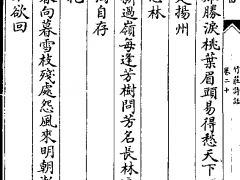 竹莊詩話
卷二十
勝淚桃葉眉頭易得愁天下
是揚州
林
新過嶺每逢芳樹問芳名長林
自存
向暮雪枝殘處怨風來明朝
欲回